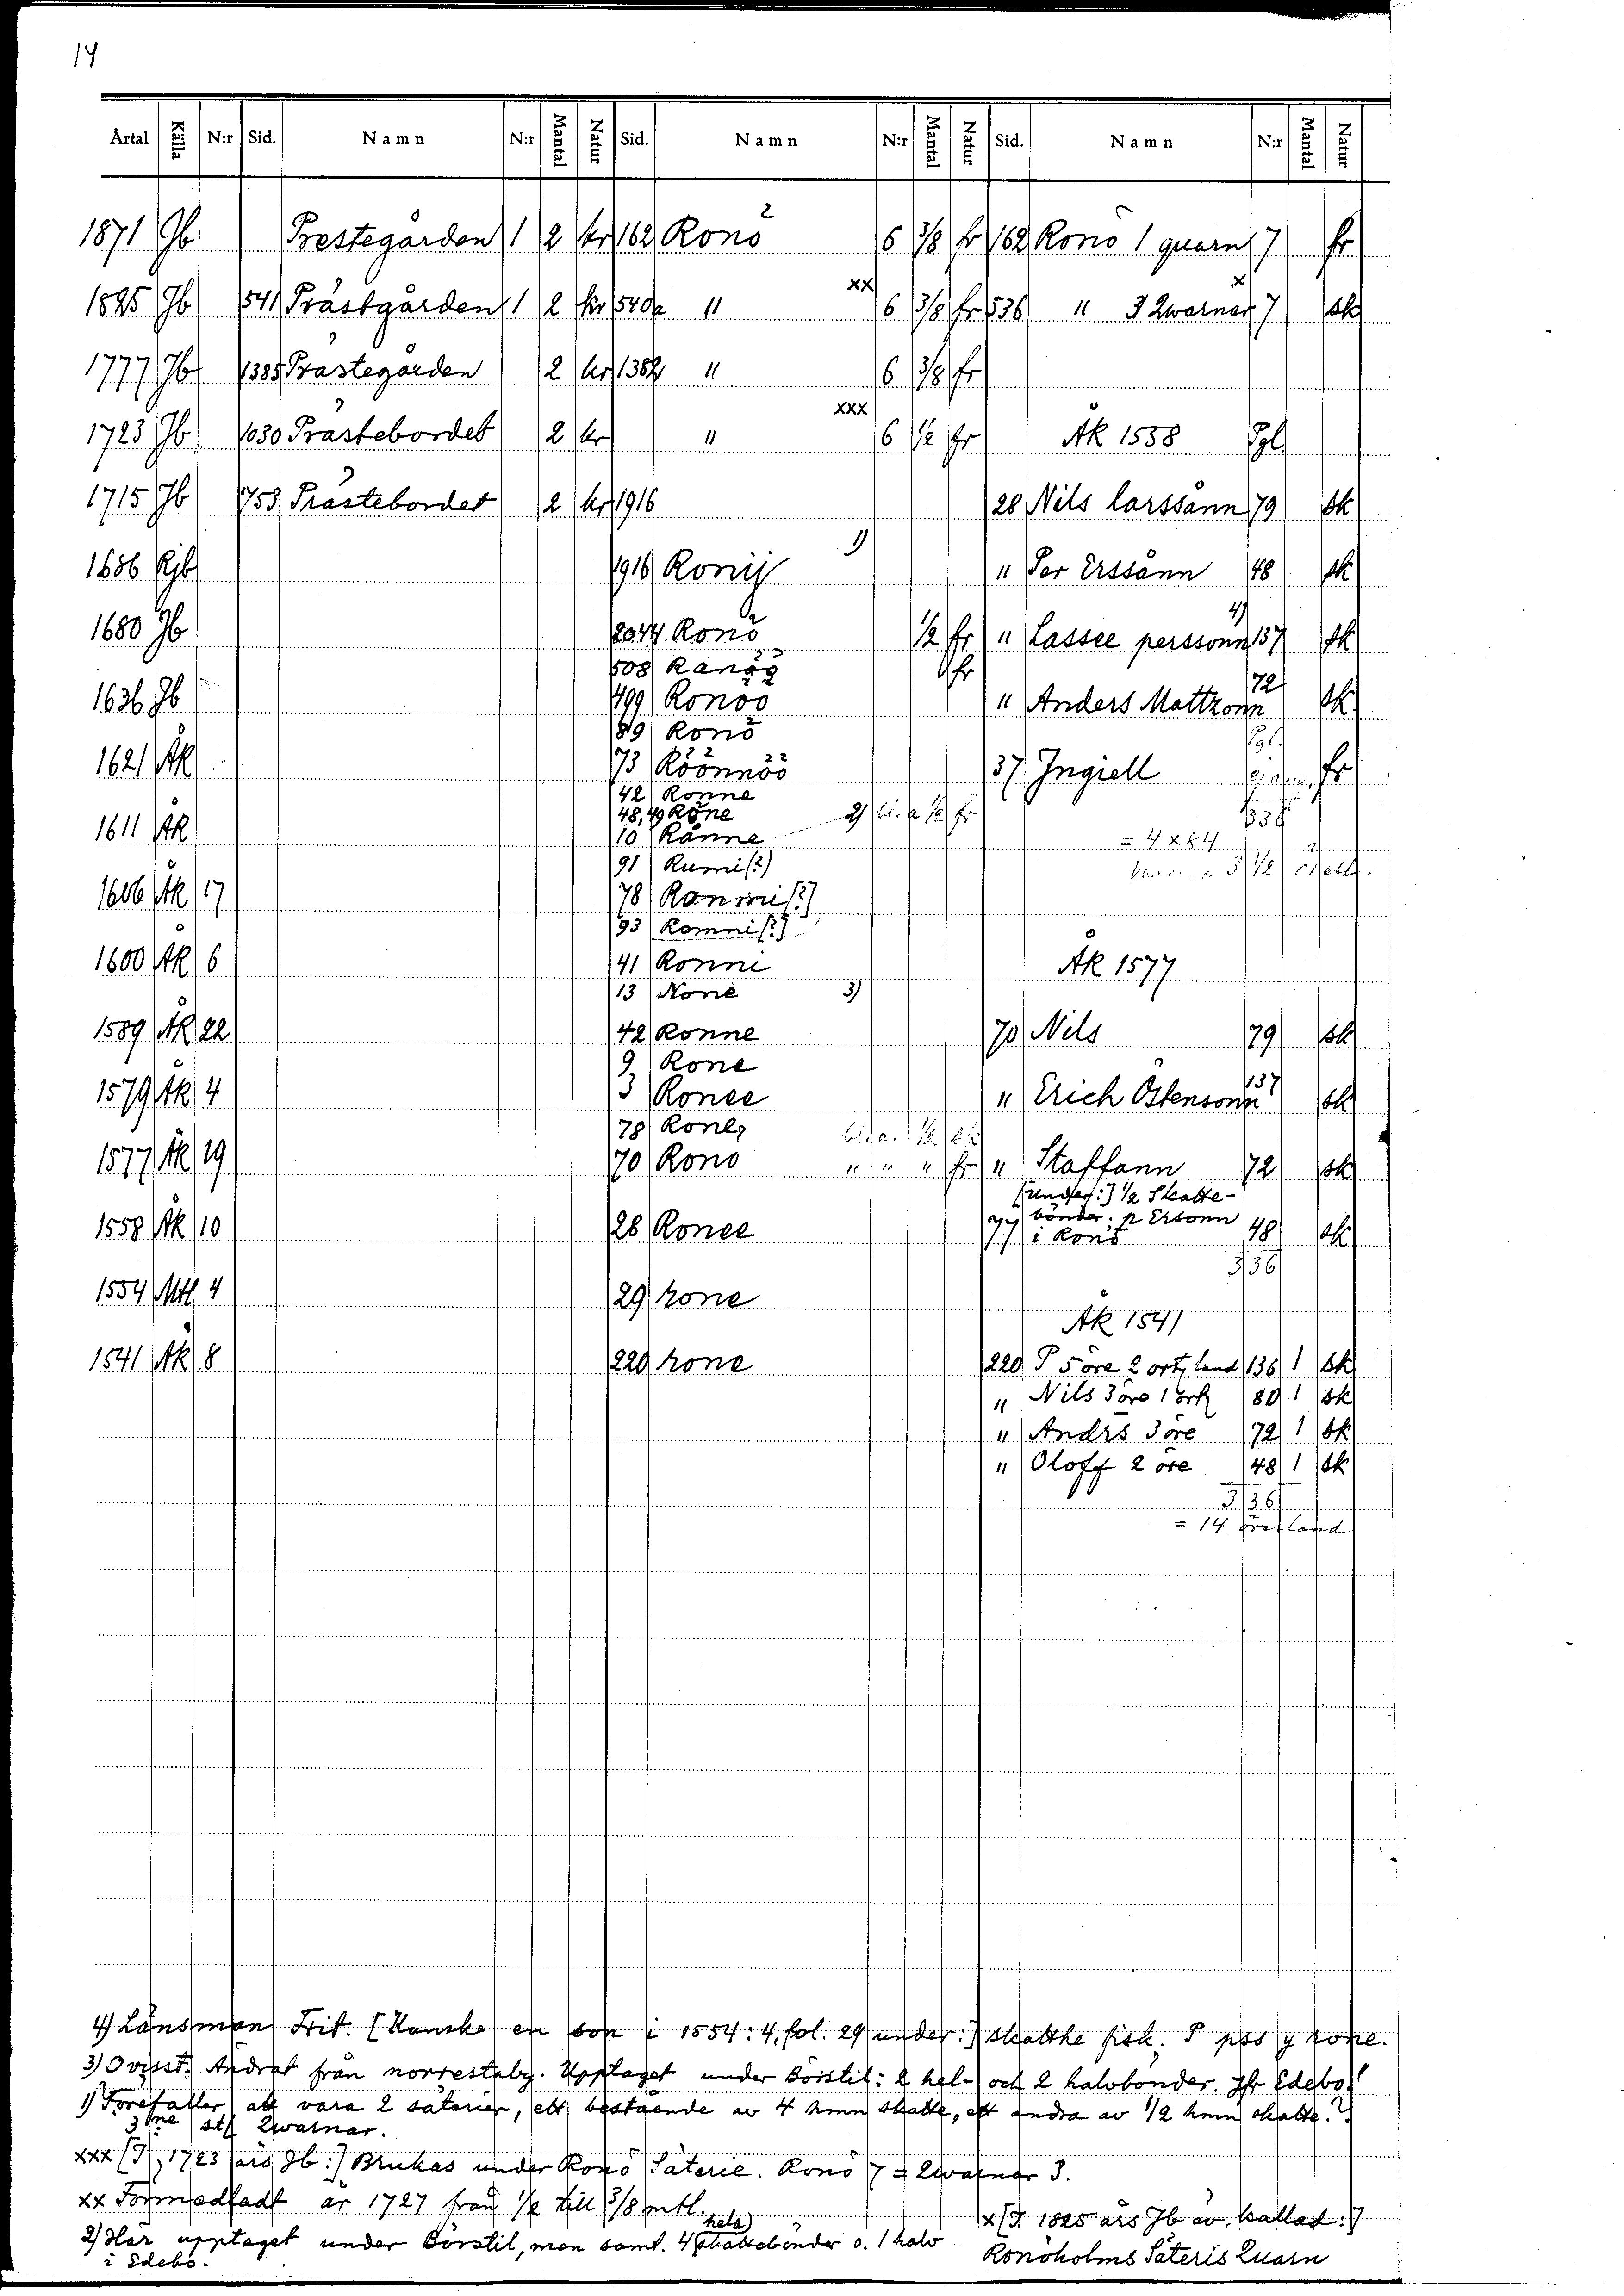 14
Årtal Källa N:r Sid. Namn N:r Mantal Natur Sid. Namn N:r Mantal Natur Sid. Namn N:r Mantal Natur
1871 Jb Prestegården 1 2 kr 162 Ronö 6 3/8 fr 162 Ronö 1 quarn 7 fr
1825 Jb 541 Prästgården 1 2 kr 540a " xx 6 3/8 fr 536 " 3 Qwarnar x 7 sk
1777 Jb 1385 Prästegården 2 kr 1382 " 6 3/8 fr
1723 Jb 1030 Prästebordet 2 kr " xxx 6 1/2 fr Åk 1558 Pgl
1715 Jb 753 Prästebordet 2 kr 1916 28 Nils larssånn 79 sk
1686 Rjb 1916 Ronij 1) " Per Erssånn 48 sk
1680 Jb 2044 Ronö 1/2 fr " Lassee perssonn 4) 137 sk
508 Ranöö fr
1636 Jb 499 Ronöö " Anders Mattzonn 72 sk
89 Ronö
1621 Åk 73 Röönnöö 37 Ingiell fr
42 Ronne
48,49 Röne 2) bl. a 1/2 fr 336
1611 Åk 10 Rånne = 4 x 84
91 Rumi(?)
1606 Åk 17 78 Ranmi[?]
93 Romni[?]
1600 Åk 6 41 Ronni Åk 1577
13 None 3)
1589 Åk 22 42 Ronne 70 Nils 79 sk
9 Rone
1579 Åk 4 3 Ronee " Erich Östensonn 137 sk
78 Rone bl. a. 1/2 sk
1577 Åk 19 70 Rono " " " fr " Staffann 72 sk
[under:] 1/2 Skatte-
bönder: p Ersonn
1558 Åk 10 28 Ronee 77 i Ronö 48 sk
336
1554 Mtl 4 29 rone
Åk 1541
1541 Åk 8 220 rone 220 P 5 öre 2 ört land 136 1 sk
" Nils 3 öre 1 ört 80 1 sk
" Andrs 3 öre 72 1 sk
" Oloff 2 öre 48 1 sk
336
= 14 öresland
4) Länsman Frit. [Kanske en son i 1554: 4, fol. 29 under:] skatthe fisk. P pss y rone.
3) Ovisst. Ändrat från norrestaby. Upptaget under Börstil: 2 hel- och 2 halvbönder. Jfr Edebo!
1) Förefaller att vara 2 säterier, ett bestående av 4 hmn skatte, ett andra av 1/2 hmn skatte.?
3ne st Qwarnar.
xxx [I 1723 års Jb:] Brukas under Ronö Säterie. Ronö 7 = Qwarnar 3.
xx Förmedladt år 1727 från 1/2 till 3/8 mtl.
x [I 1825 års Jb äv. kallad:]
2) Här upptaget under Börstil, men saml. 4 (hela) skattebönder o. 1 halv
Ronöholms Säteris Quarn
i Edebo.